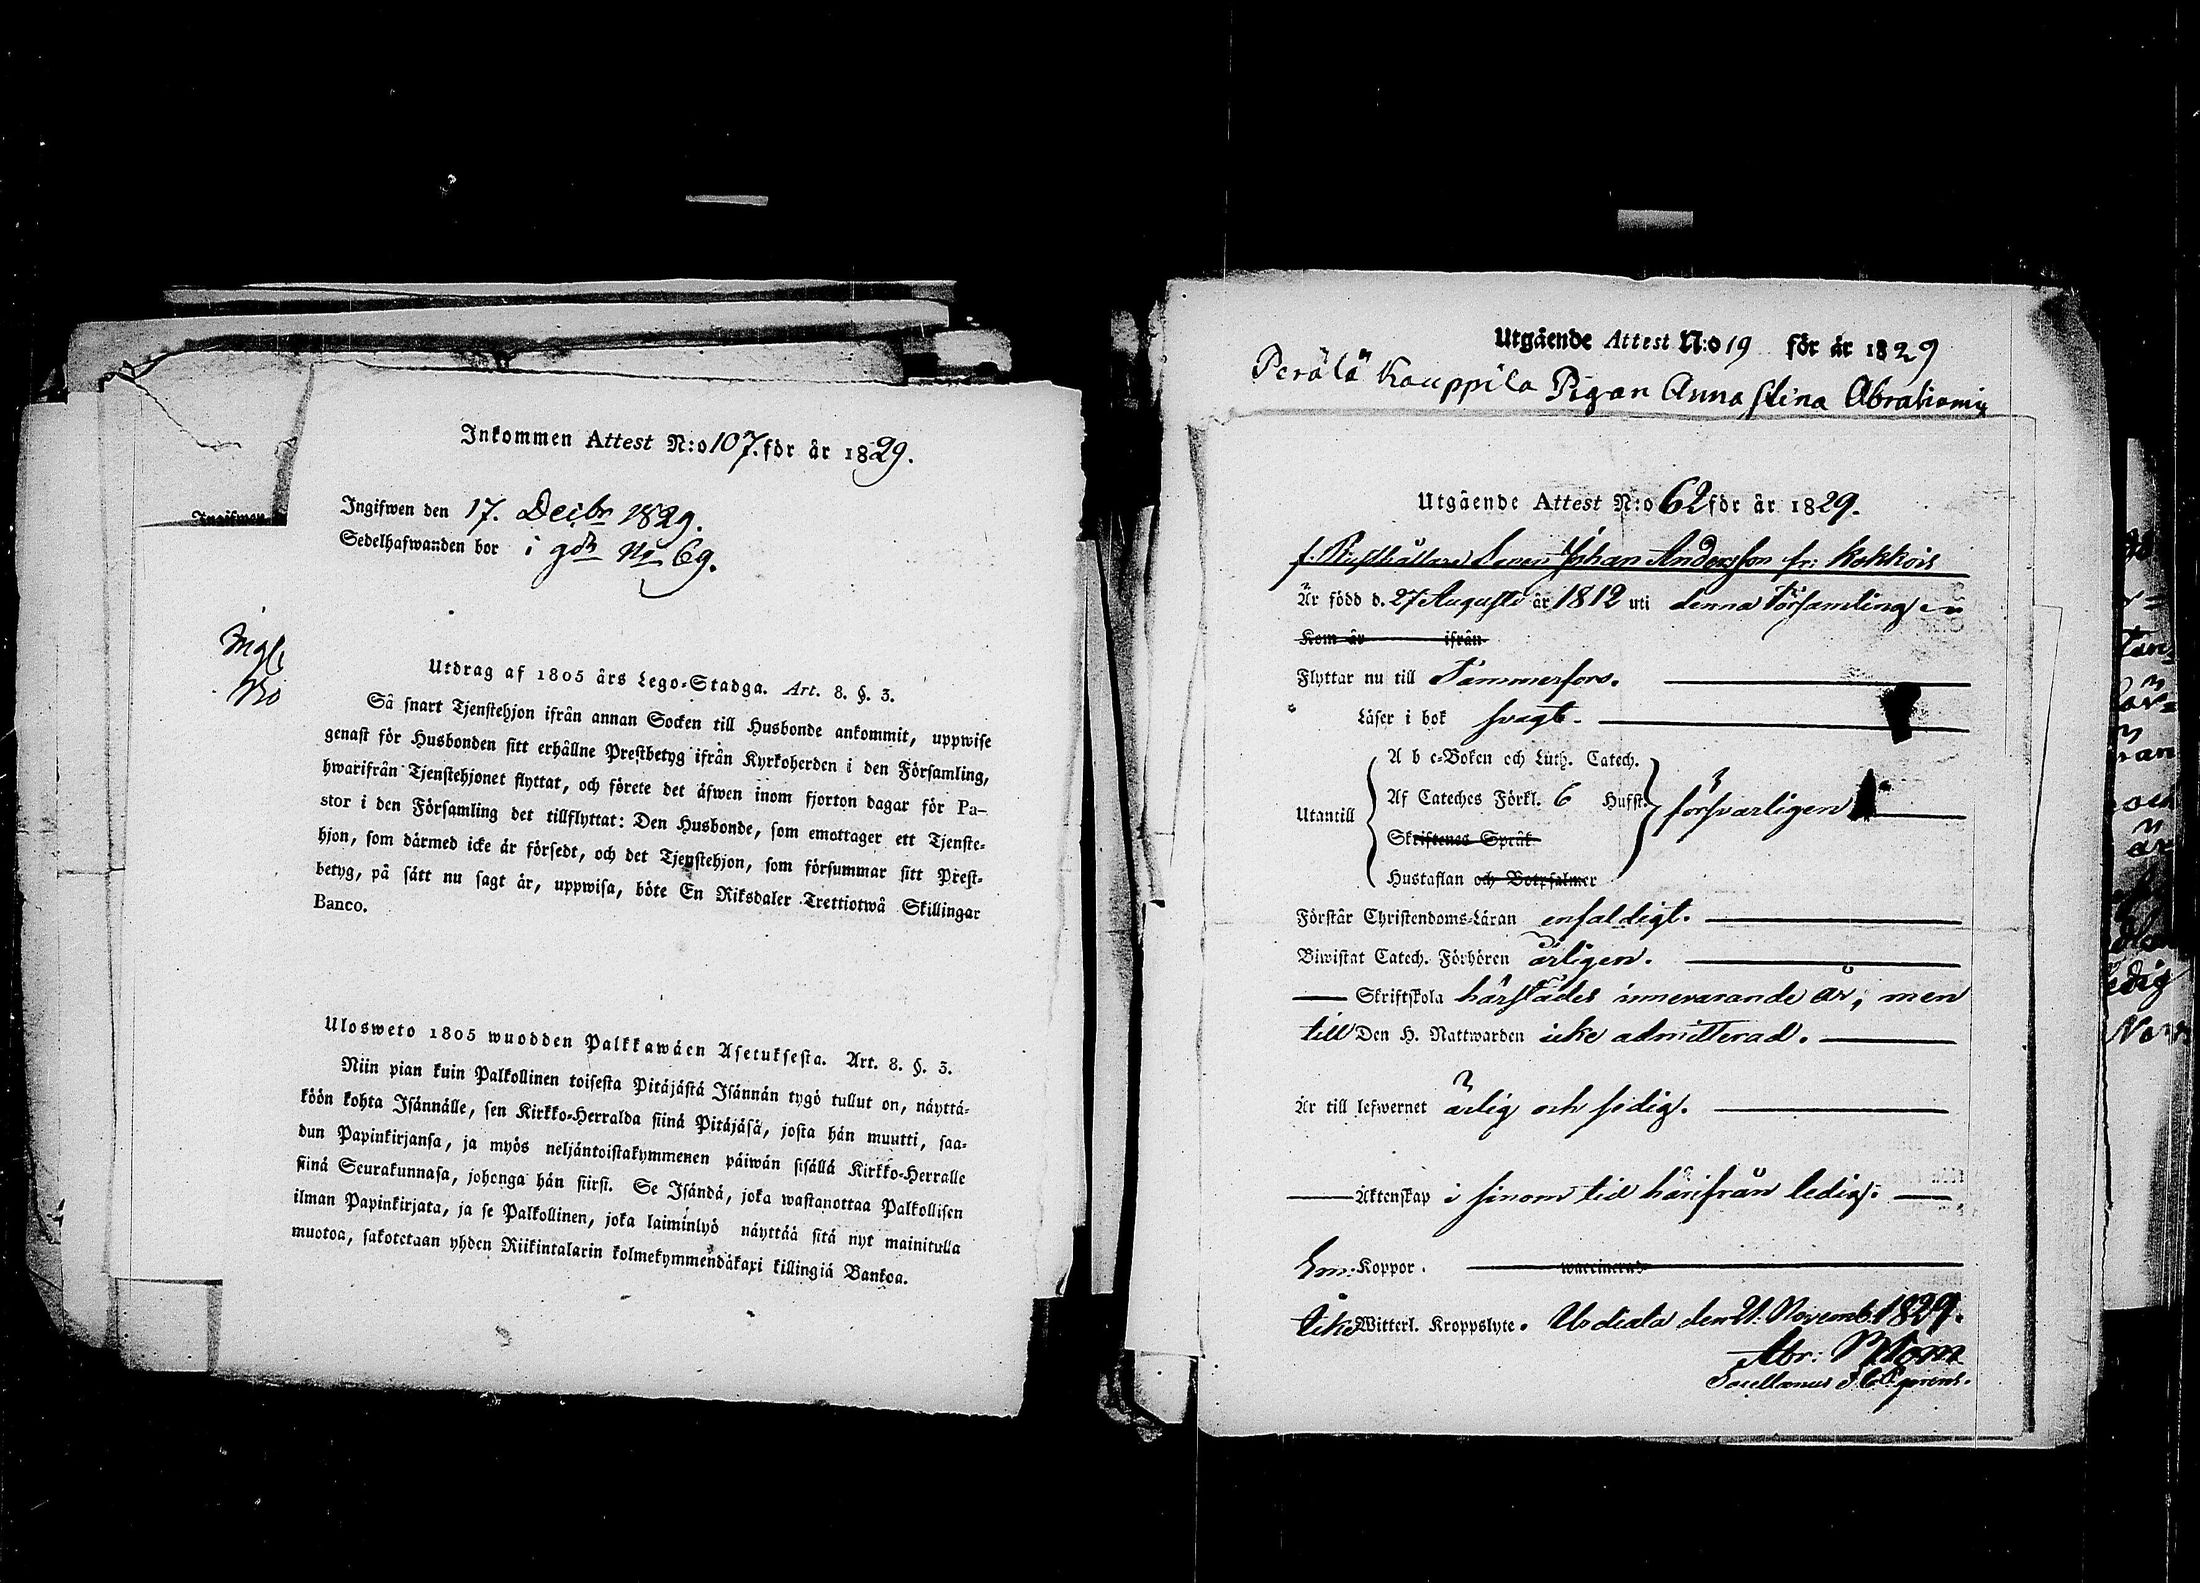 Inkommen Attest N:o 107. för år 1829.
Ingifwen
Ingifwen den 17. Decibr 1829.
Sedelhafwanden bor i gdn No 69.
Utdrag af 1805 års Lego-Stadga. Art. 8. §. 3.
Så snart Tjenstehjon ifrån annan Socken till Husbonde ankommit, uppwise
genast för Husbonden sitt erhållne Prestbetyg ifrån Kyrkoherden i den Församling,
hwarifrån Tjenstehjonet flyttat, och förete det äfwen inom fjorton dagar för Pa-
stor i den Församling det tillflyttat: Den Husbonde, som emottager ett Tjenste-
hjon, som därmed icke är försedt, och det Tjenstehjon, som försummar sitt Prest-
betyg, på sätt nu sagt är, uppwisa, böte En Riksdaler Trettiotwå Skillingar
Banco.
Ulosweto 1805 wuodden Palkkawäen Asetuksesta. Art. 8. §. 3.
Niin pian kuin Palkollinen toisesta Pitäjästä Isännän tygö tullut on, näyttä-
köön kohta Isännälle, sen Kirkko-Herralda siinä Pitäjäsä, josta hän muutti, saa-
dun Papinkirjansa, ja myös neljäntoistakymmenen päiwän sisällä Kirkko-Herralle
siinä Seurakunnasa, johonga hän siirsi. Se Isändä, joka wastanottaa Palkollisen
ilman Papinkirjata, ja se Palkollinen, joka laiminlyö näyttää sitä nyt mainitulla
muotoa, sakotetaan yhden Riikintalarin kolmekymmendäkaxi killingiä Bankoa.
Utgående Attest N:o 19 för år 1829
Perälä Kauppila Pigan Anna Stina Abrahams
Utgående Attest N:o 62 för år 1829.
f. Rusthållare Sonen Johan Andersson fr: Kokkois
Är född d. 27 Augusti år 1812 uti denna Församling
Kom år ifrån
Flyttar nu till Tammerfors.
Läser i bok svagt.
A b c-Boken och Luth. Catech.
Utantill Af Cateches Förkl. 6 Hufst. försvarligen
Skriftenes Språk
Hustaflan och Botpsalmer
Förstår Christendoms-Läran enfaldigt.
Biwistat Catech. Förhören årligen.
Skriftskola härstädes innevarande år, men
till Den H. Nattwarden icke admitterad.
Är till lefwernet ärlig och sedig.
Äktenskap i sinom tid härifrån ledig.
Em: Koppor. waccinerad
Icke Witterl. Kroppslyte. Urdiala den 21. Novemb. 1829.
Abr: Blom
Sacellanus